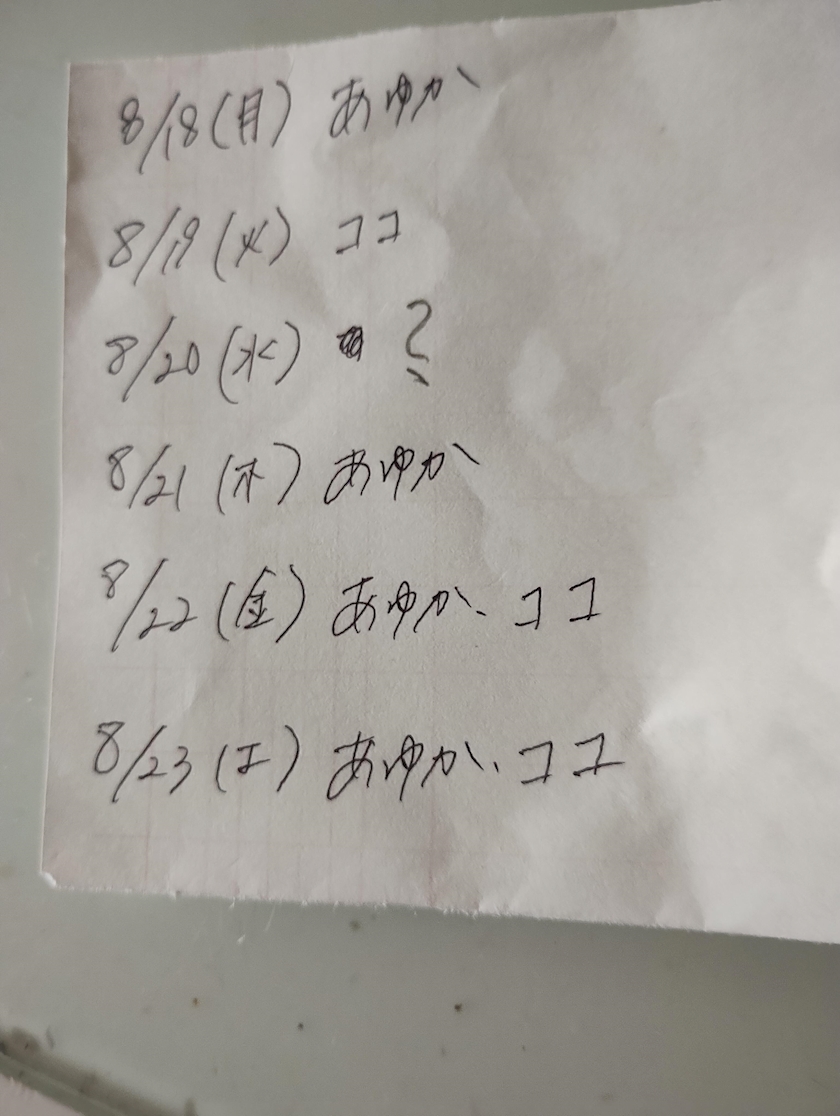 8/18(月) あゆか
8/19(火) ココ
8/20(水) ?
8/21(木) あゆか
8/22(金) あゆか、ココ
8/23(土) あゆか、ココ